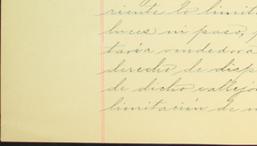 riente lo limit
luces ni paso, 
taria vendedora
derecho de disp
de dicho callejo
limitación de